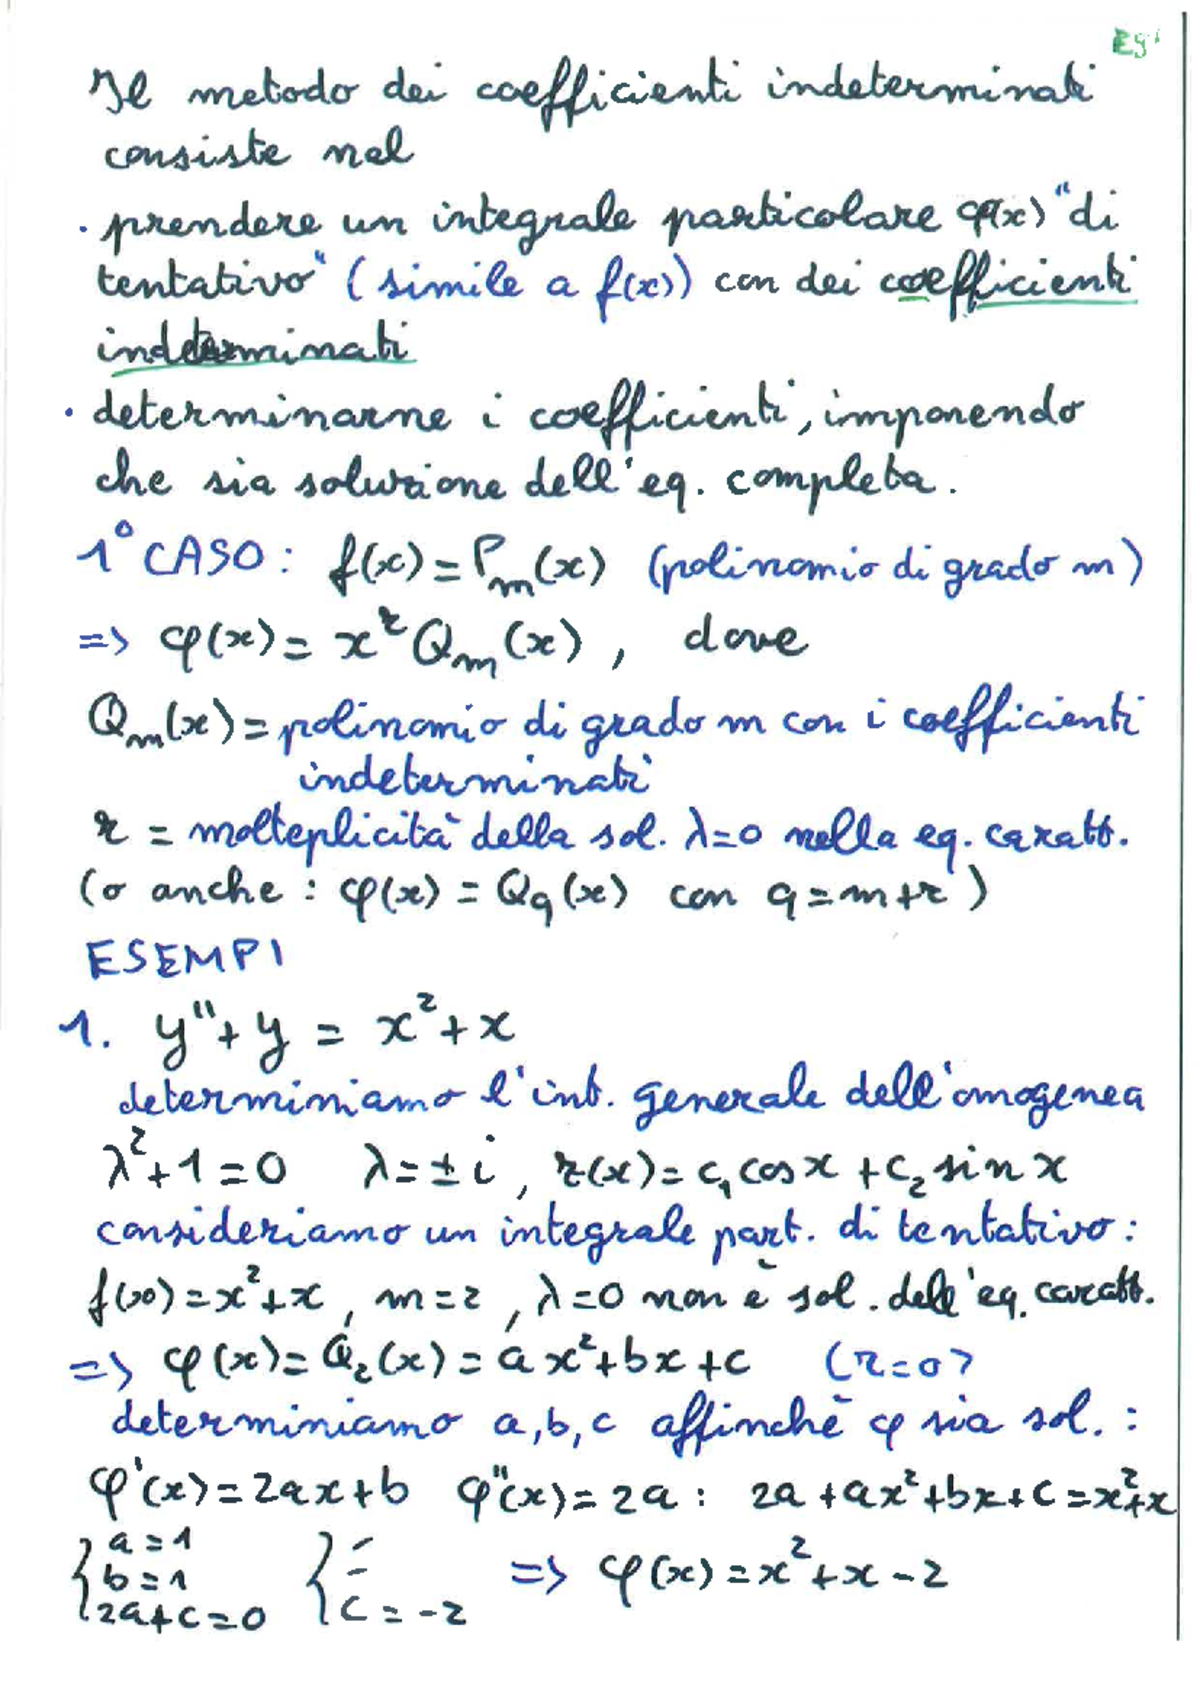 Il metodo dei coefficienti indeterminati
consiste nel
· prendere un integrale particolare φ(x) "di
tentativo" (simile a f(x)) con dei coefficienti
indeterminati
· determinarne i coefficienti, imponendo
che sia soluzione dell'eq. completa.
1° CASO: f(x) = Pm(x) (polinomio di grado m)
=> φ(x) = x^r Qm(x), dove
Qm(x) = polinomio di grado m con i coefficienti
indeterminati
r = molteplicità della sol. λ=0 nella eq. caratt.
(o anche : φ(x) = Qq(x) con q=m+r)
ESEMPI
1. y"+y = x²+x
determiniamo l'int. generale dell'omogenea
λ²+1=0 λ=±i, z(x)=c₁cosx+c₂sinx
consideriamo un integrale part. di tentativo:
f(x)=x²+x, m=2, λ=0 non è sol. dell'eq. caratt.
=> φ(x)=Q₂(x)=ax²+bx+c (r=0)
determiniamo a,b,c affinchè φ sia sol. :
φ'(x)=2ax+b φ"(x)=2a: 2a+ax²+bx+c=x²+x
{ a=1 { –
b=1 – => φ(x)=x²+x-2
2a+c=0 c=-2